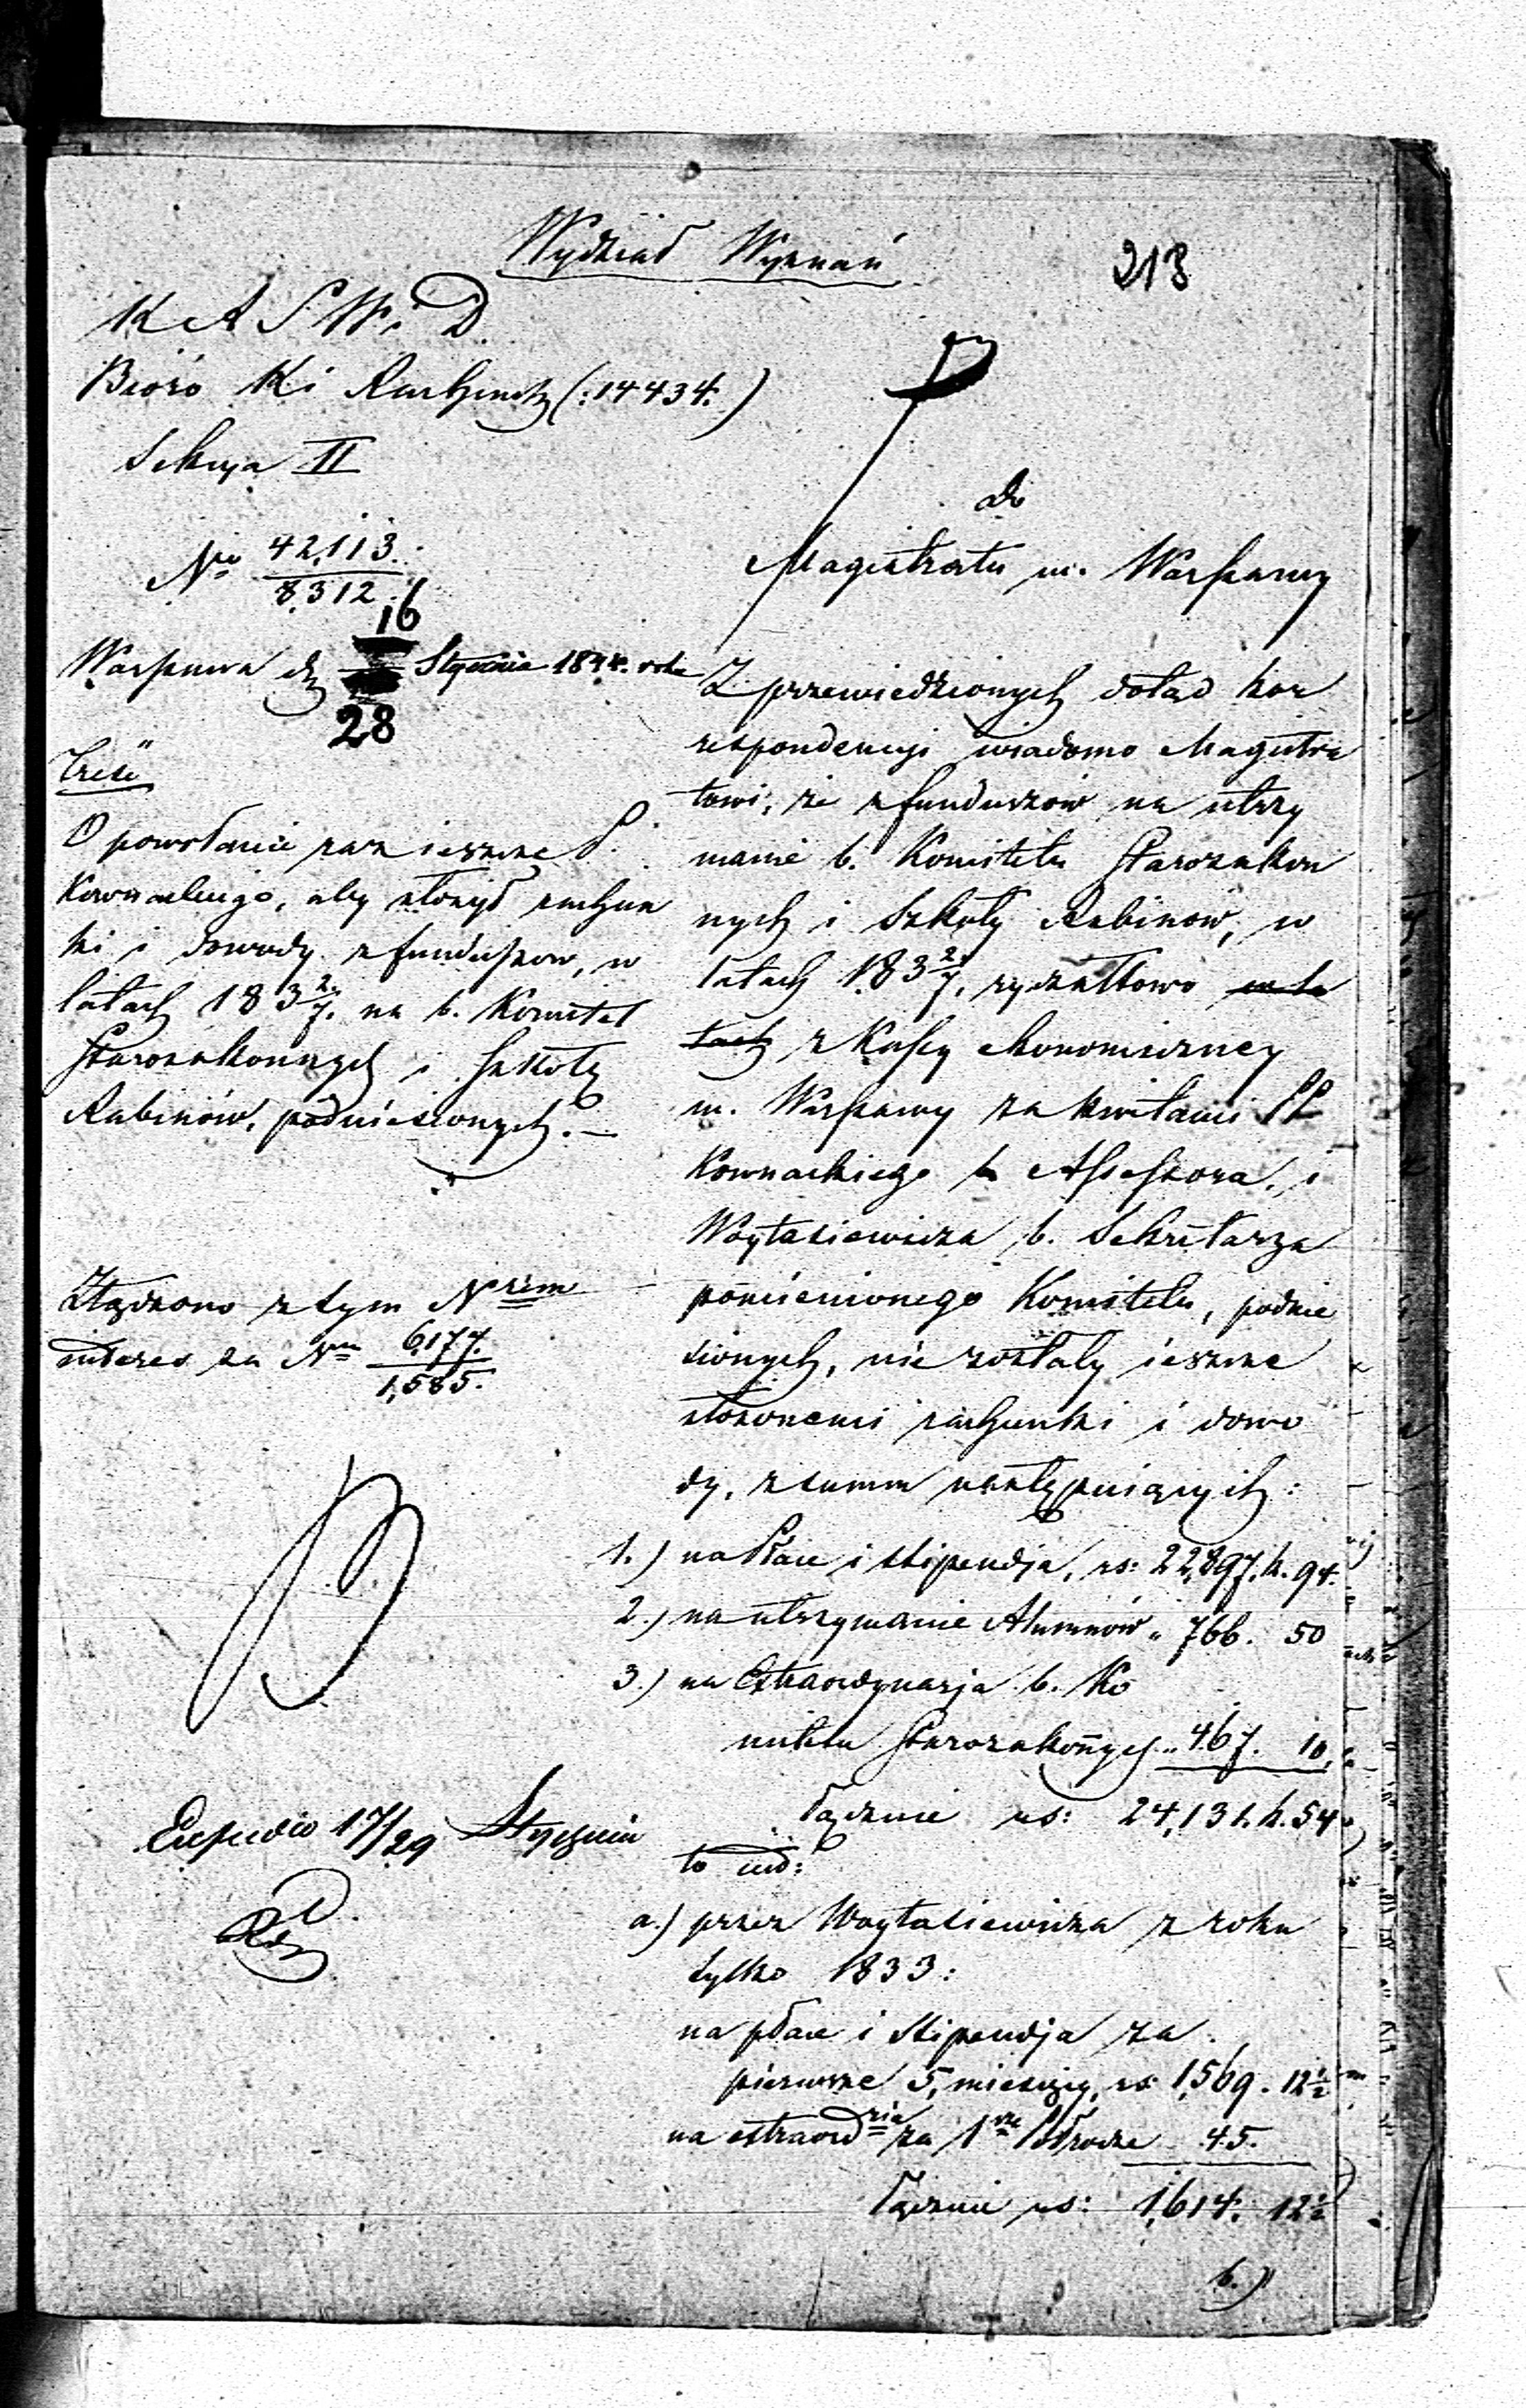 Wydział Wyznań
218
K R S W i D.
Bióro Ki Rachunk (:14434:)
Sekcya II
No 42,113.
8,312.
16
Warszawa d Stycznia 1844. roku
28
Treść
O powołanie raz ieszcze P.
Kownackiego, aby złożył rachun
ki i dowody z funduszow, w
latach 183 2/7. na b. Komitet
Starozakonnych i Szkołę
Rabinów, podniesionych. —
Złączono z tym Nrem
interes za Nm 6,177.
1,585.
Expedio 17/29 Stycznia
do
Magistratu m. Warszawy
Z przewiedzionych dotąd kor
respondencyi wiadomo Magistra
towi, że z funduszów na utrzy
manie b. Komitetu Starozakon
nych i Szkoły Rabinów, w
latach 183 2/7, ryczałtowo w la
tach z Kassy ekonomiczney
m. Warszawy za kwitami PP
Kownackiego b Assessora, i
Woytasiewicza b. Sekretarza
pomienionego Komitetu, podnie
sionych, nie zostały ieszcze
złożonemi rachunki i dowo
dy, z summ następuiących:
1.) na Płace i stipendja, rs: 22,897. k. 94.
2.) na utrzymanie Alumnów " 766. 50
3.) na Extraordynarja b. Ko
mitetu Starozakonnych " 467. 10,
łącznie rs: 24,131. k. 54
to iest:
a.) przez Woytasiewicza z roku
tylko 1833:
na płace i stipendja za
pierwsze 5, miesięcy, rs 1,569. 12½
na extraord ria za 1sze Półrocze 45.
łącznie rs: 1,614. 12½
b.)